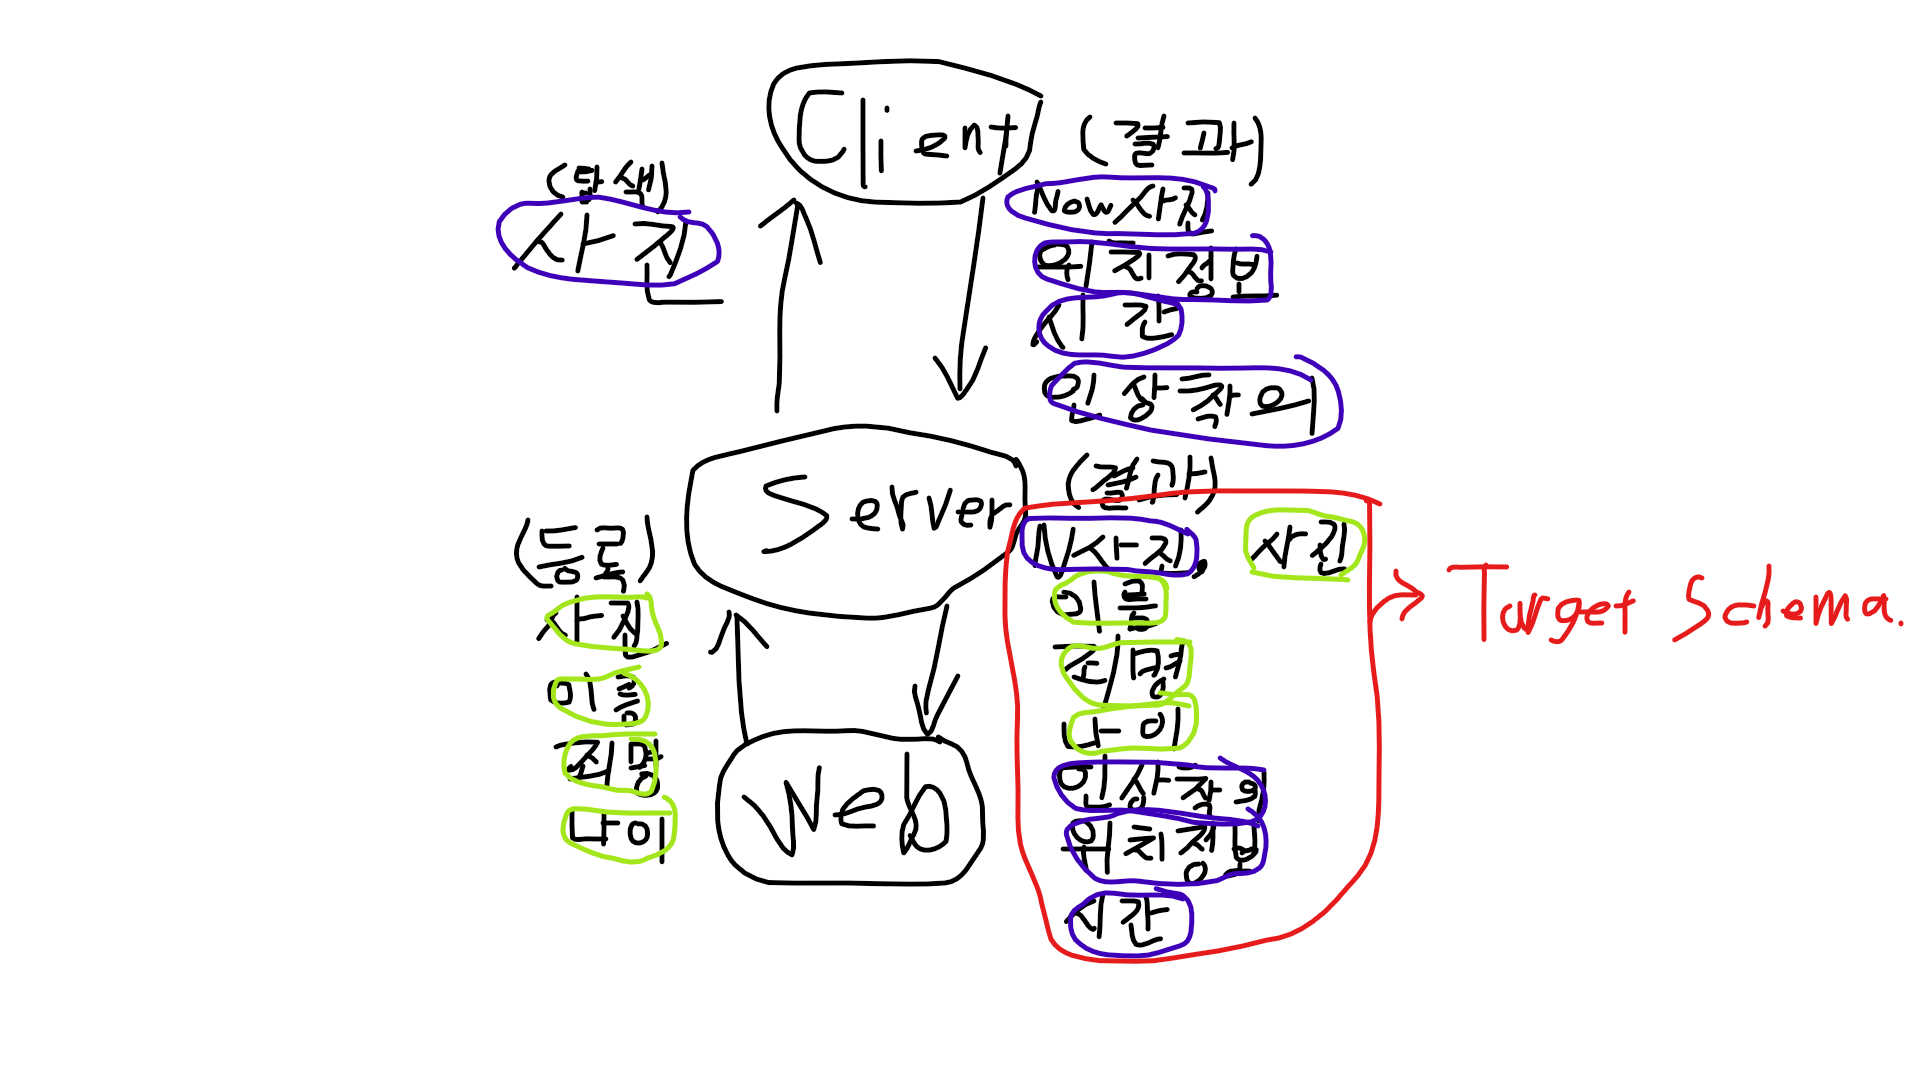 Client
(탐색)
사진
(결과)
Now사진
위치정보
시간
인상착의
Server
(등록)
사진
이름
죄명
나이
(결과)
N사진, 사진
이름
죄명
나이
인상착의
위치정보
시간
Target Schema.
Web